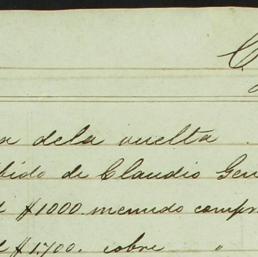 a dela vuelta
bido de Claudio Gen
$1000 menudo compr
$1.700. sobre "